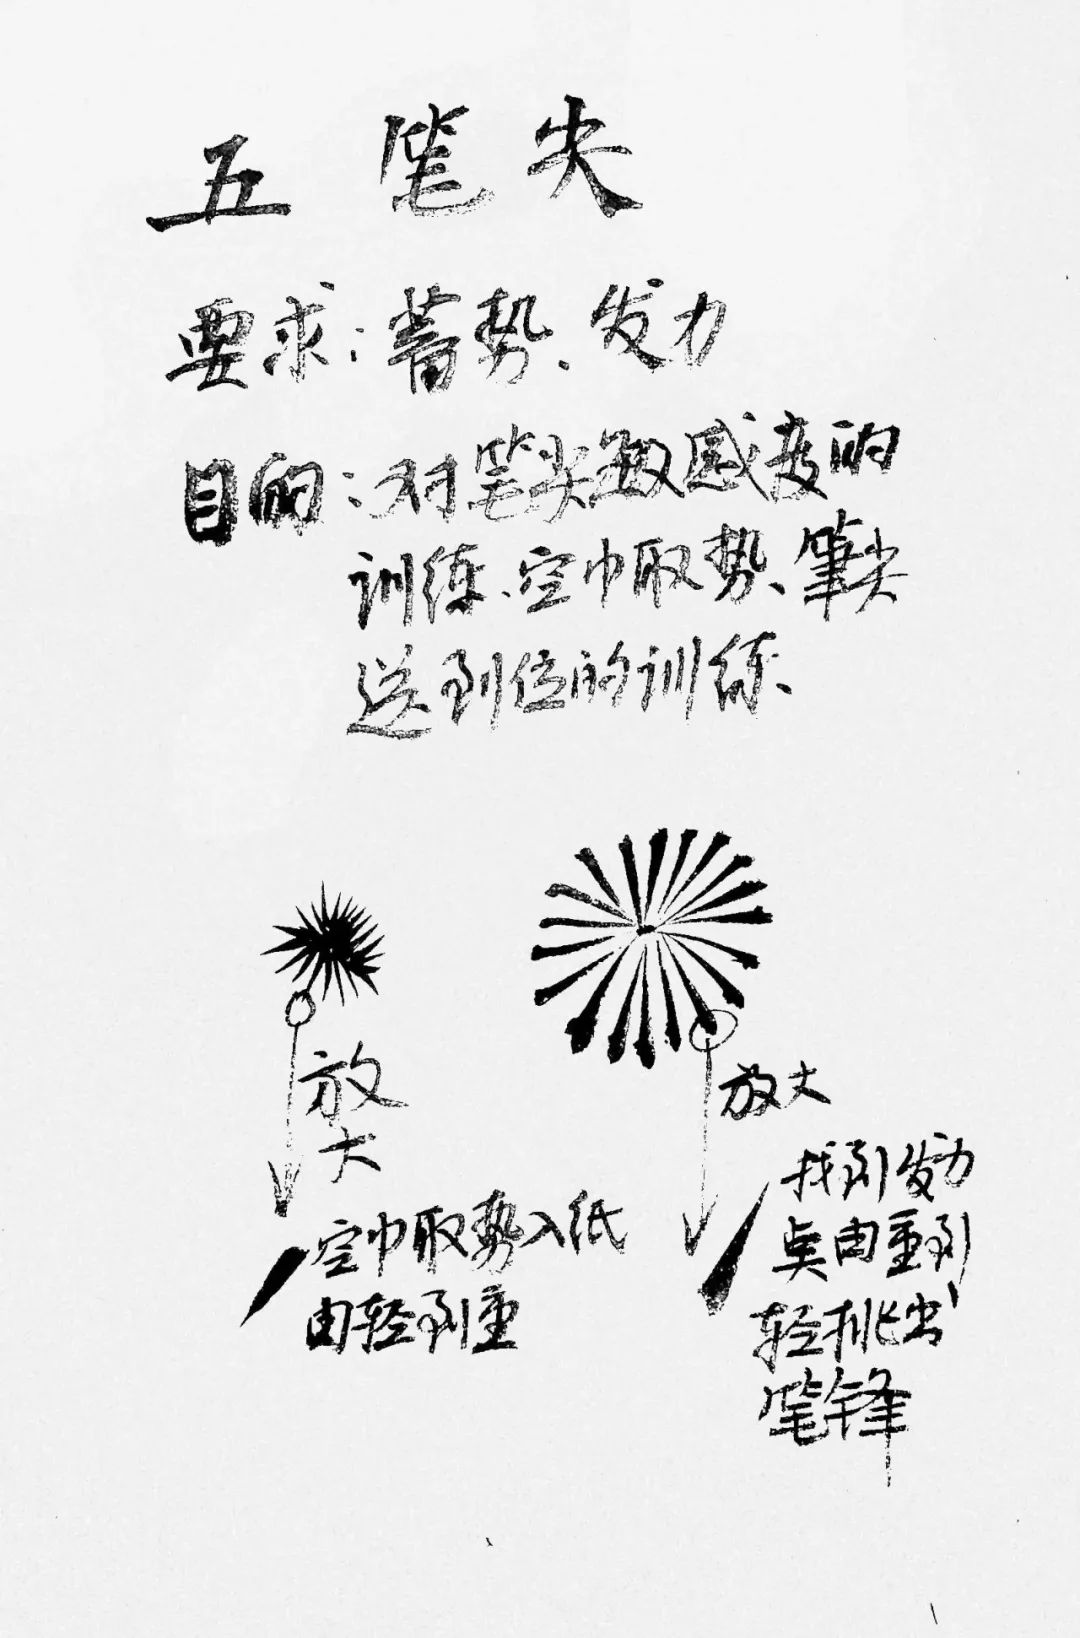 五笔尖
要求：蓄势、发力
目的：对笔尖敏感度的
训练、空中取势、筆尖
送到位的训练、
放大
空中取势入纸
由轻到重
放大
找到发力
点由重到
轻挑出
笔锋